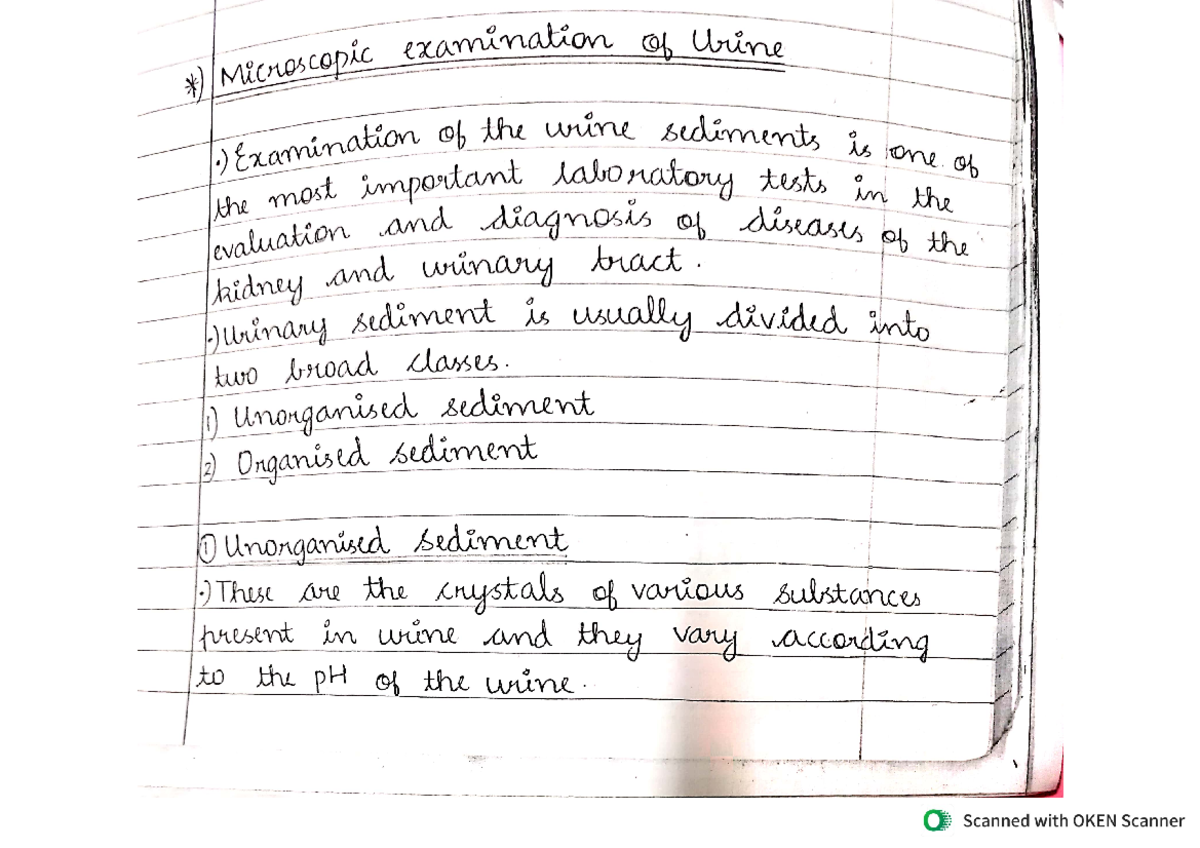 *) Microscopic examination of Urine
·) Examination of the urine sediments is one of
the most important laboratory tests in the
evaluation and diagnosis of diseases of the
kidney and urinary tract.
·) Urinary sediment is usually divided into
two broad classes.
1) Unorganised sediment
2) Organised sediment
① Unorganised sediment
·) These are the crystals of various substances
present in urine and they vary according
to the pH of the urine.
Scanned with OKEN Scanner